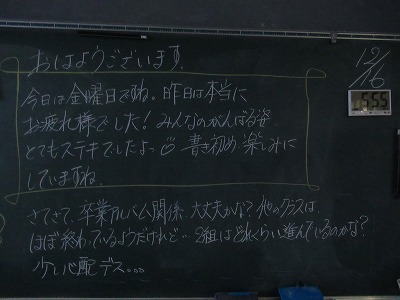 おはようございます。
今日は金曜日ですね。昨日は本当に
お疲れ様でした!みんなのがんばる姿
とてもステキでしたよっ 書き初め楽しみに
していますね。
さてさて、卒業アルバム関係、大丈夫かな?他のクラスは、
ほぼ終わっているようだけれど… 2組はどれくらい進んでいるのかな?
少し心配デス。。。
12/16
5:55